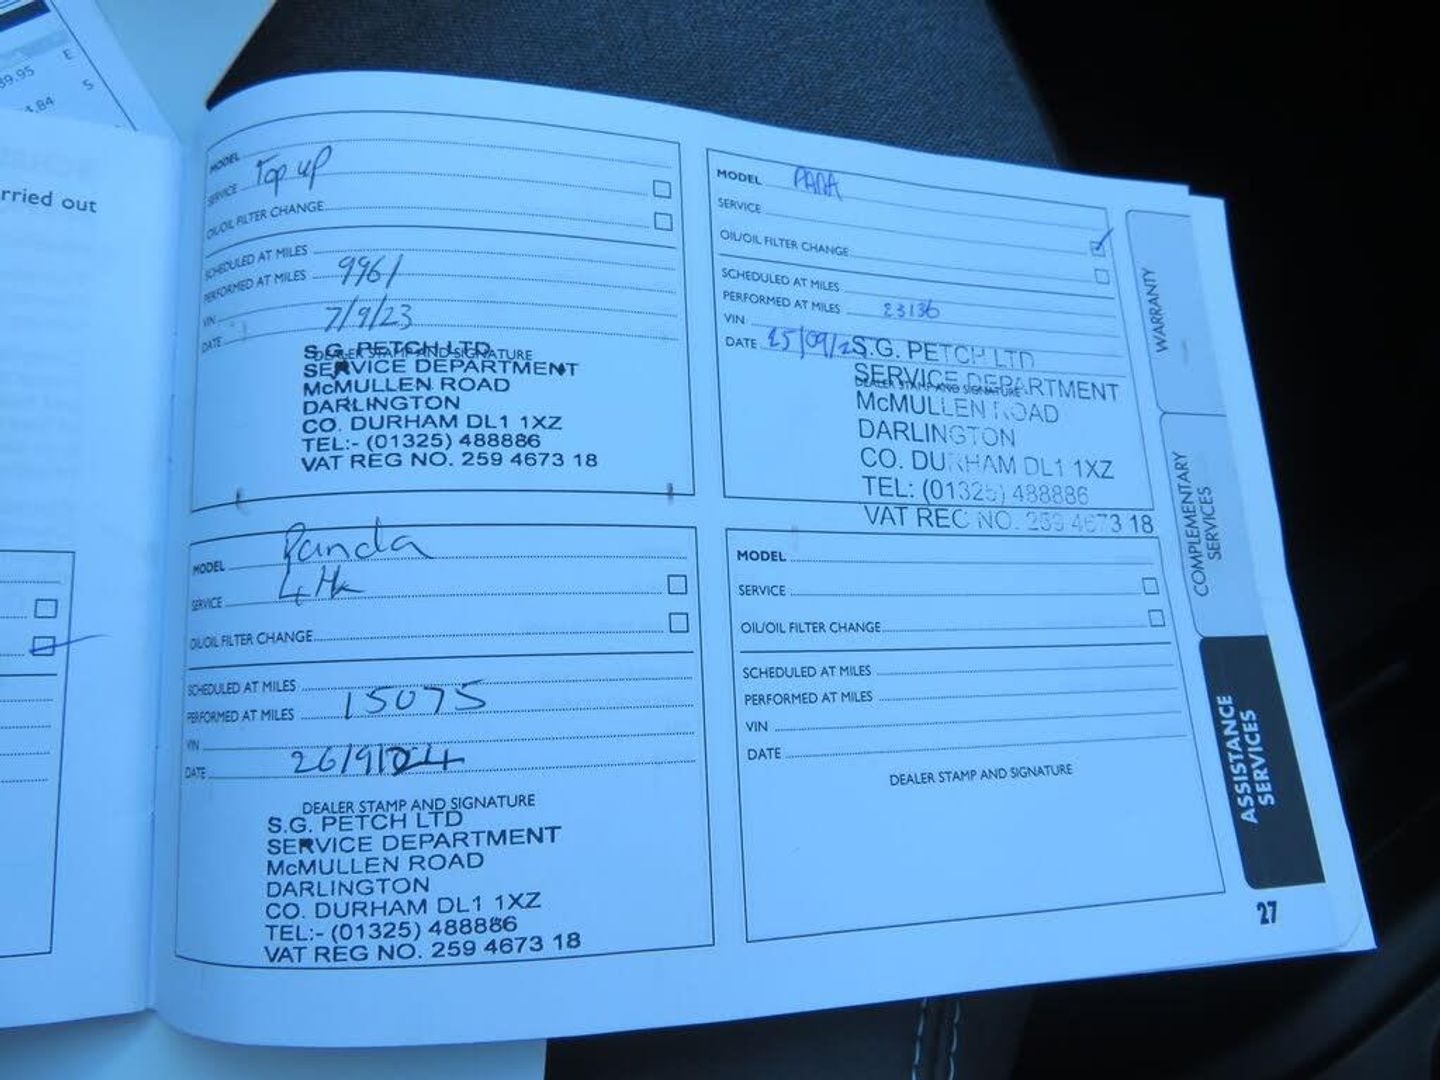 39.95 E
4.84 S
rried out
MODEL
SERVICE Top up
OIL/OIL FILTER CHANGE
SCHEDULED AT MILES
PERFORMED AT MILES 9961
VIN
DATE 7/9/23
DEALER STAMP AND SIGNATURE
S.G. PETCH LTD
SERVICE DEPARTMENT
McMULLEN ROAD
DARLINGTON
CO. DURHAM DL1 1XZ
TEL:- (01325) 488886
VAT REG NO. 259 4673 18
MODEL Panda
SERVICE
OIL/OIL FILTER CHANGE
SCHEDULED AT MILES
PERFORMED AT MILES 15075
VIN
DATE 26/9/24
DEALER STAMP AND SIGNATURE
S.G. PETCH LTD
SERVICE DEPARTMENT
McMULLEN ROAD
DARLINGTON
CO. DURHAM DL1 1XZ
TEL:- (01325) 488886
VAT REG NO. 259 4673 18
MODEL
SERVICE
OIL/OIL FILTER CHANGE
SCHEDULED AT MILES
PERFORMED AT MILES 23136
VIN
DATE 25/09/25
DEALER STAMP AND SIGNATURE
S.G. PETCH LTD
SERVICE DEPARTMENT
McMULLEN ROAD
DARLINGTON
CO. DURHAM DL1 1XZ
TEL: (01325) 488886
VAT REG NO. 259 4673 18
MODEL
SERVICE
OIL/OIL FILTER CHANGE
SCHEDULED AT MILES
PERFORMED AT MILES
VIN
DATE
DEALER STAMP AND SIGNATURE
WARRANTY
COMPLEMENTARY
SERVICES
ASSISTANCE
SERVICES
27